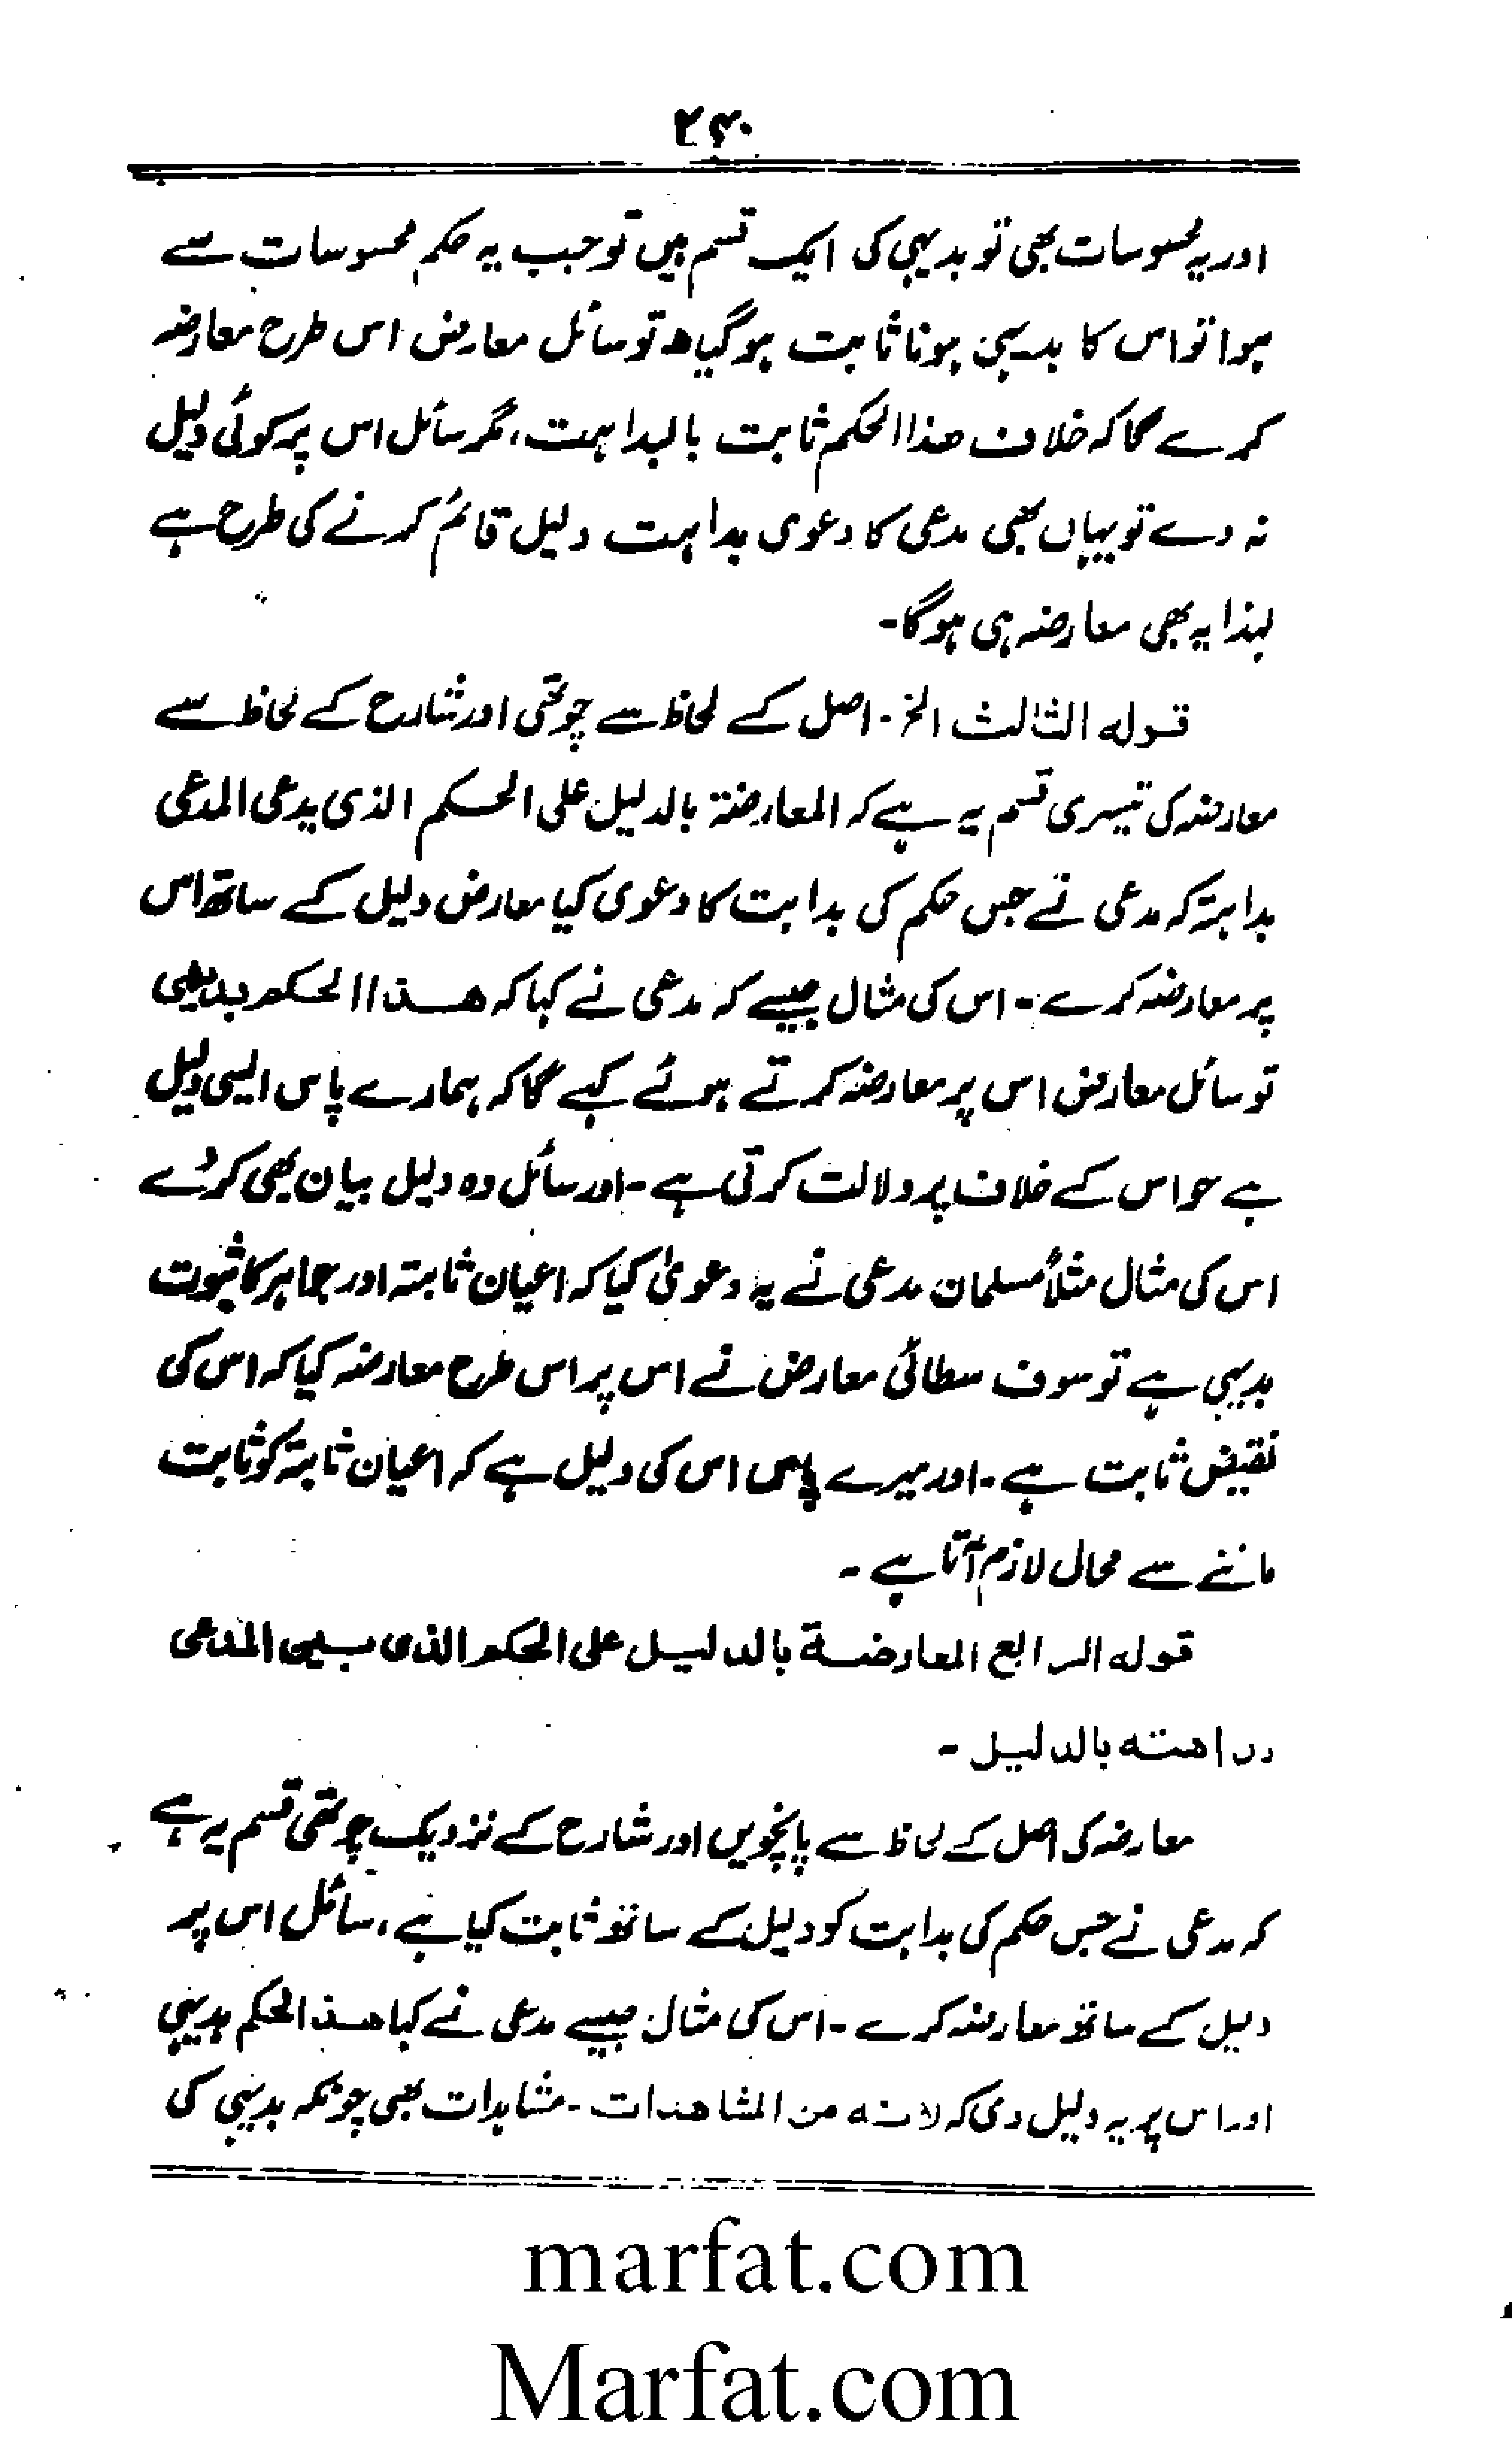 ۲۴۰
اور یہ محسوسات بھی تو بدیہی کی ایک قسم ہیں تو جب یہ حکم محسوسات سے
ہوا تو اس کا بدیہی ہونا ثابت ہوگیا تو سائل معارض اس طرح معارضہ
کرے گا کہ خلاف ھذا الحکم ثابت بالبداہت، مگر سائل اس پر کوئی دلیل
نہ دے تو یہاں بھی مدعی کا دعوی بداہت دلیل قائم کرنے کی طرح ہے
لہذا یہ بھی معارضہ ہی ہوگا۔
قولہ الثالث الخ۔ اصل کے لحاظ سے چوتھی اور شارح کے لحاظ سے
معارضہ کی تیسری قسم یہ ہے کہ المعارضۃ بالدلیل علی الحکم الذی یدعی المدعی
بداہتہ کہ مدعی نے جس حکم کی بداہت کا دعوی کیا معارض دلیل کے ساتھ اس
پر معارضہ کرے۔ اس کی مثال جیسے کہ مدعی نے کہا کہ ھذا الحکم بدیھی
تو سائل معارض اس پر معارضہ کرتے ہوئے کہے گا کہ ہمارے پاس ایسی دلیل
ہے جو اس کے خلاف پر دلالت کرتی ہے۔ اور سائل وہ دلیل بیان بھی کر دے
اس کی مثال مثلاً مسلمان مدعی نے یہ دعویٰ کیا کہ اعیان ثابتہ اور جماہر کا ثبوت
بدیہی ہے تو سوف سطائی معارض نے اس پر اس طرح معارضہ کیا کہ اس کی
نقیض ثابت ہے۔ اور میرے پاس اس کی دلیل ہے کہ اعیان ثابتہ کو ثابت
ماننے سے محال لازم آتا ہے۔
قولہ الرابع المعارضۃ بالدلیل علی الحکم الذی بین المدعی
بداھتہ بالدلیل۔
معارضہ کی اصل کے لحاظ سے پانچویں اور شارح کے نزدیک چوتھی قسم یہ ہے
کہ مدعی نے جس حکم کی بداہت کو دلیل کے ساتھ ثابت کیا ہے، سائل اس پر
دلیل کے ساتھ معارضہ کرے۔ اس کی مثال جیسے مدعی نے کہا ھذا الحکم بدیہی
اور اس پر یہ دلیل دی کہ لانہ من المشاھدات۔ مشاہدات بھی چونکہ بدیہی کی
marfat.com
Marfat.com